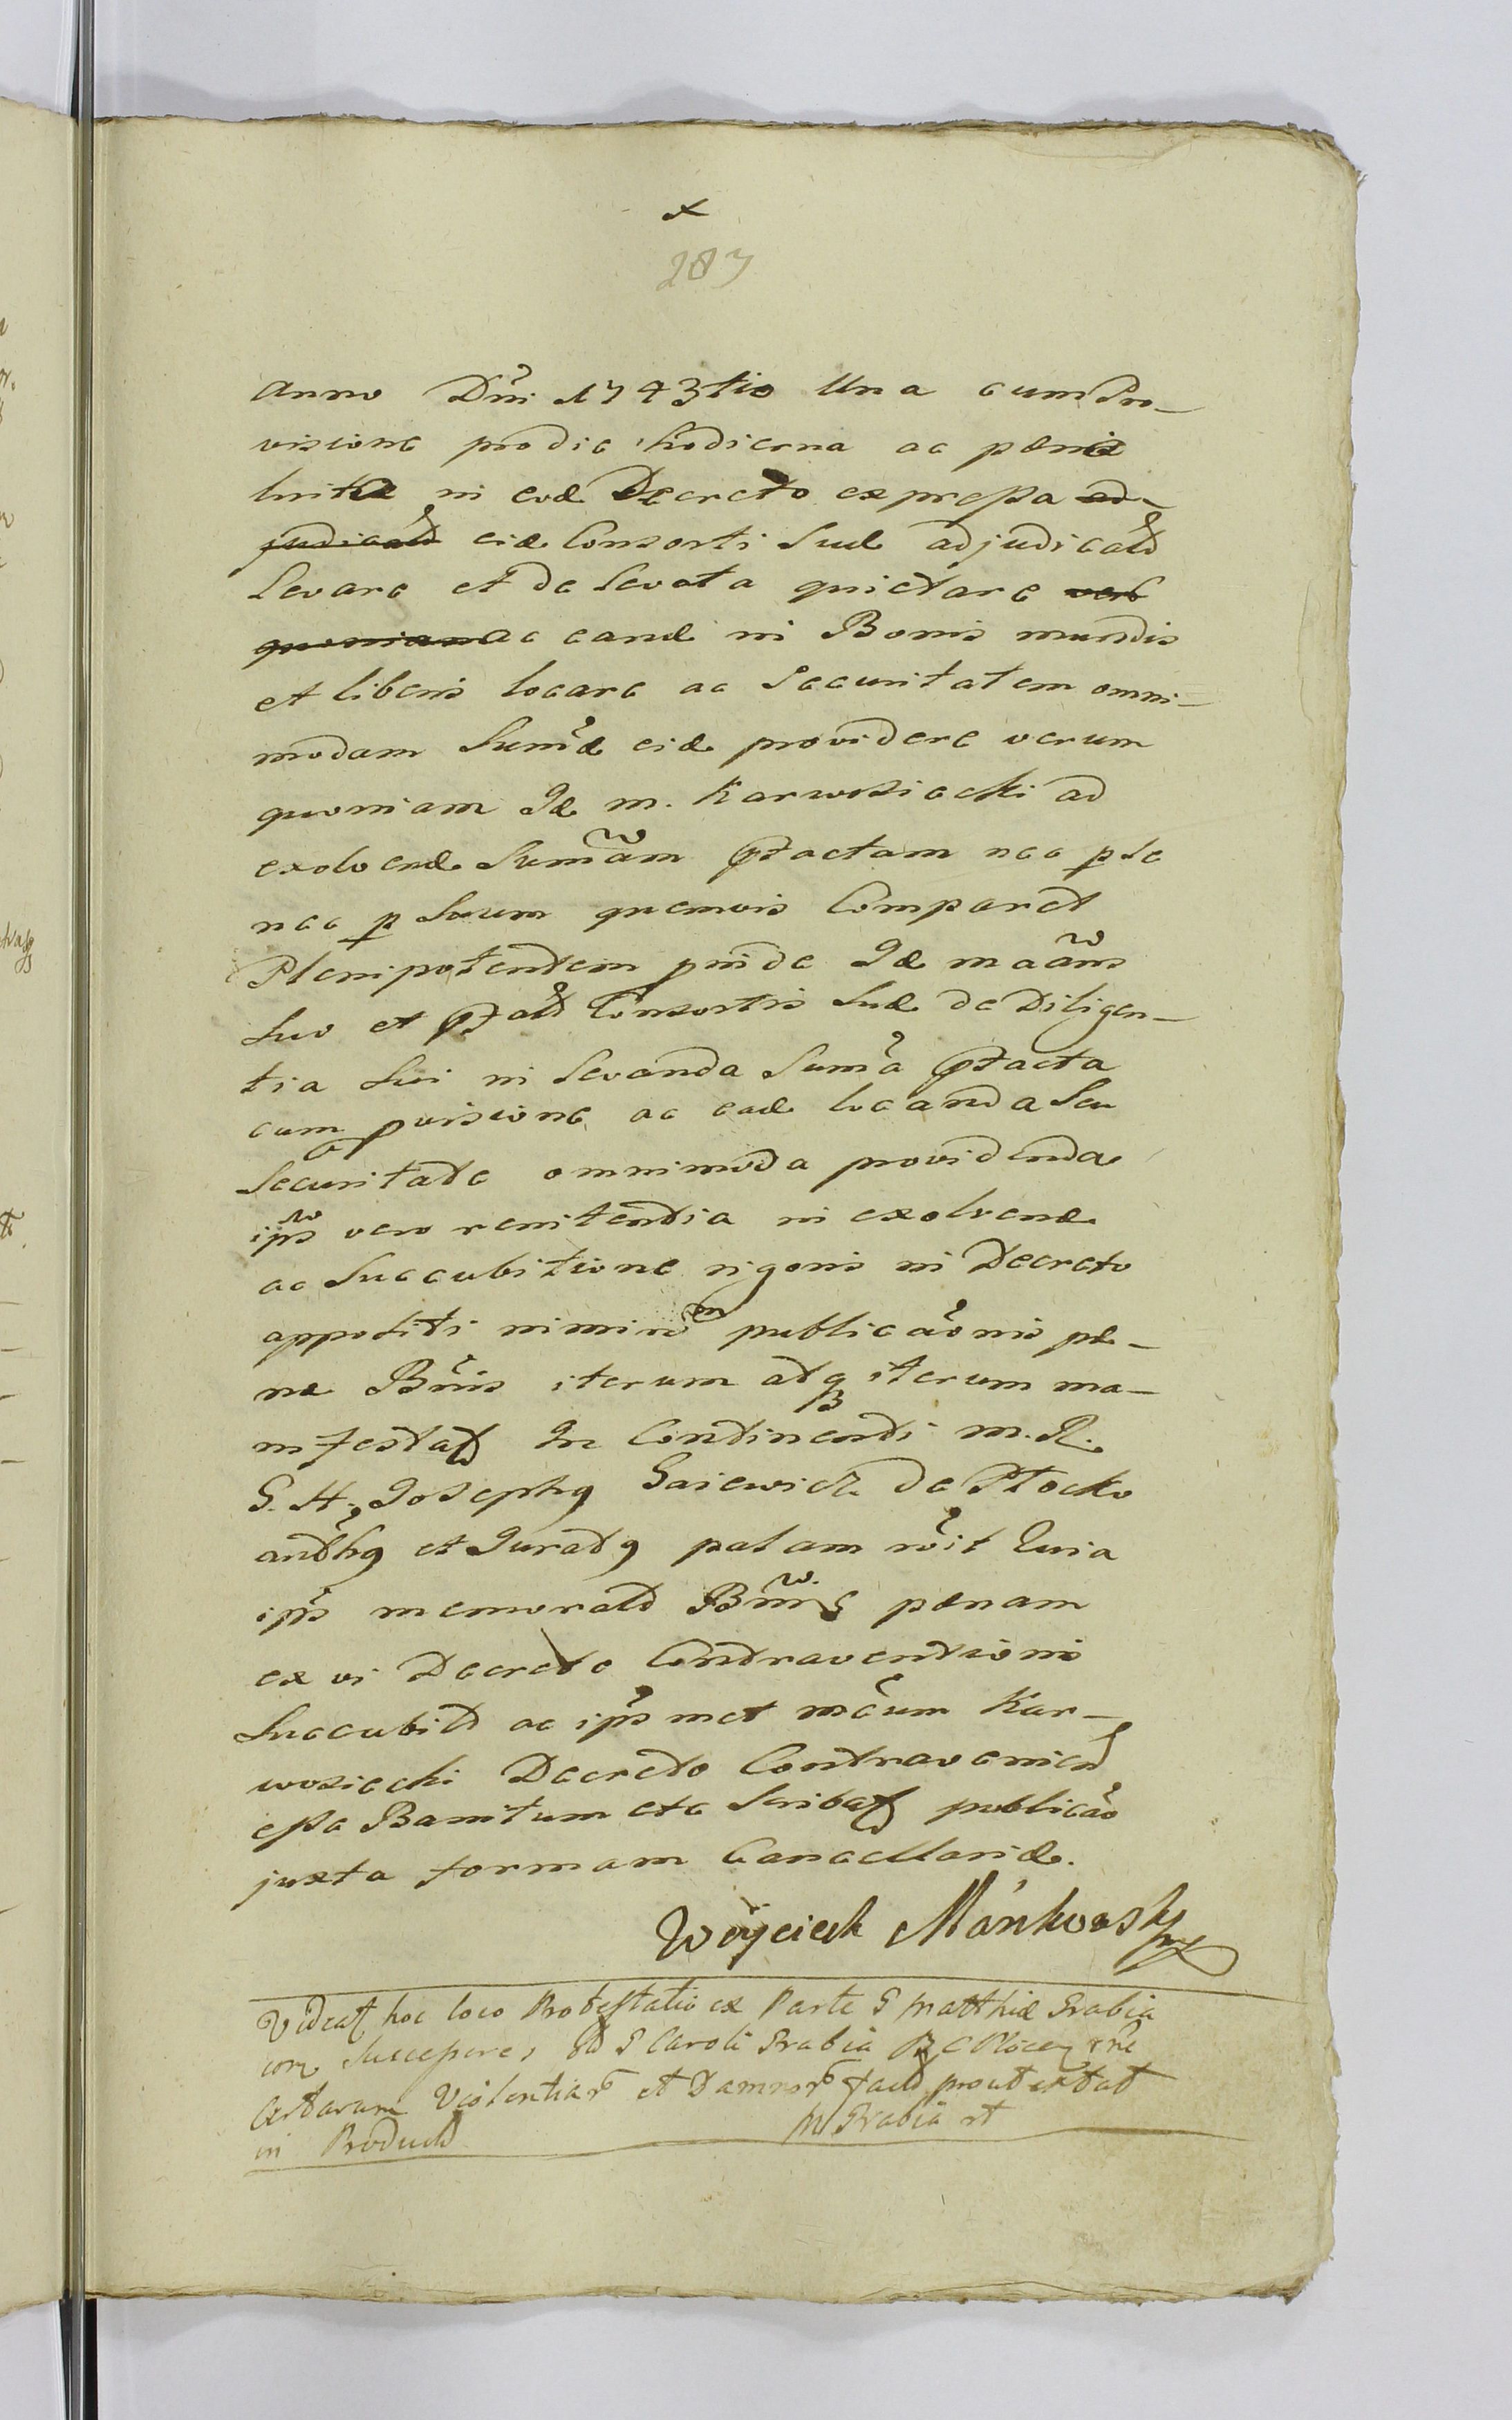 x
287
Anno Dni 1743tio Una cum Pro-
visione pro die hodierna ac pæna
luita in eod Decreto expressa ad-
judicatt eid Consorti Suæ adjudicatt
levare et de levata quietare vero
quoniam ac eand in Bonis mundis
et liberis locare ac Securitatem omni-
modam Sumæ eid providere verum
quoniam Id m. Karwosiecki ad
exolvend Sumam ptactam nec p se
nec p Suum quemvis Comparet
Plenipotentem pinde Id
Suo et Consortis Suæ de Diligen-
tia Sui in levanda Suma ptacta
cum pvisione ac ead locanda Seu
Securitate omnimoda providenda
ips vero renitentia in exolvend
ac Succubitione rigoris in Decreto
appositi nimirm publicaonis pæ-
næ Bnis iterum atq iterum ma-
nifestat In Continenti M. R.
G. H. Josephg Gaiewicz de Plocko
authg et Juratg palam rōit Quia
ips memoratt Bnis pænam
ex vi Decreto Contraventionis
Succubitt ac ipsmet mcum Kar-
wosiecki Decreto Contravenien
esse Banitum etc Scribat publicao
juxta formam Cancellariæ.
Woyciech Mánkowsky mp
Videat hoc loco Protestatio ex Parte G Matthiæ Grabia
con Susceptore, G Caroli Grabia
Certarum Violentiar et Damnor fact prout extat
in Product M Grabia